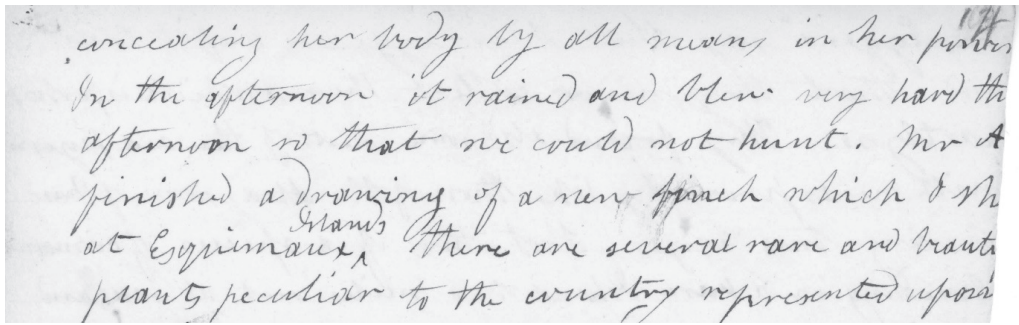 concealing her body by all means in her power
In the afternoon it rained and blew very hard th
afternoon so that we could not hunt. Mr A
finished a drawing of a new finch which I sh
Islands
at Esquimaux ‸ there are several rare and beauti
plants peculiar to the country represented upon